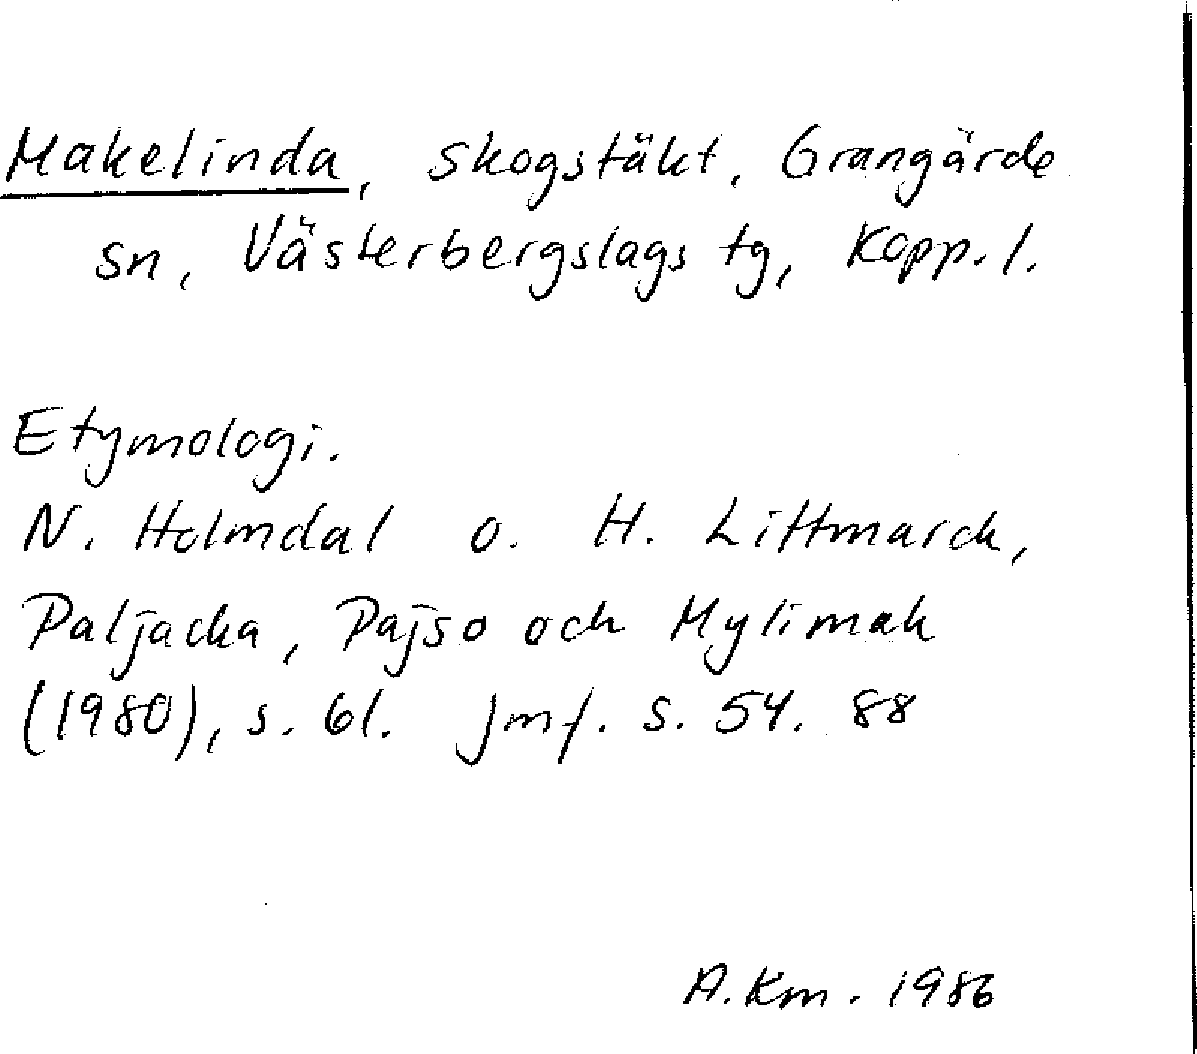 Makelinda, skogstäkt, Grangärde
sn, Västerbergslags tg, Kopp. l.
Etymologi.
N. Holmdal o. H. Littmarck,
Paljacka, Pajso och Mylimak
(1980), s. 61. Jmf. s. 54. 88
A. Km. 1986